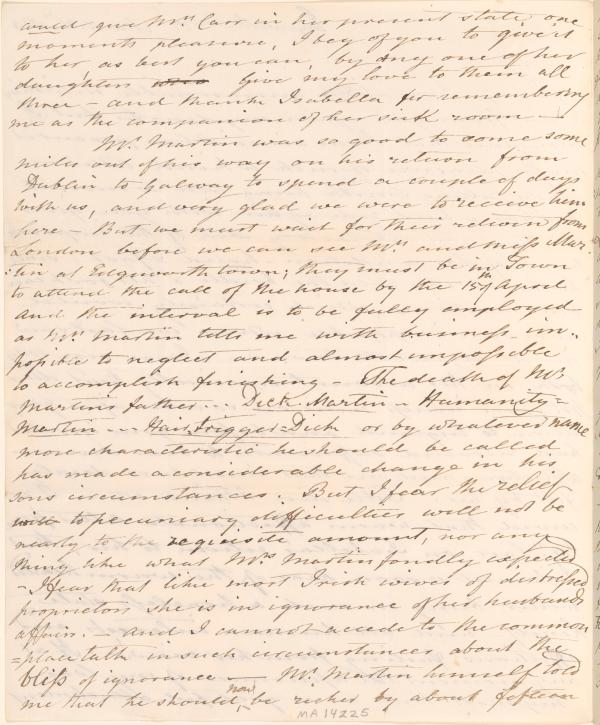 would give Mrs. Carr in her present state, one
moments pleasure, I beg of you to give it
to her as best you can, by any one of her
daughters Give my love to them all
three – and thank Isabella for remembering
me as the companion of her sick room –
Mr. Martin was so good to come some
miles out of his way on his return from
Dublin to Galway to spend a couple of days
with us, and very glad we were to receive him
here – But we must wait for their return from
London before we can see Mrs and Miss Mar
:tin at Edgeworthtown; they must be in Town
to attend the call of the house by the 15th April
and the interval is to be fully employed
as Mrs. Martin tells me with business im„
possible to neglect and almost impossible
to accomplish finishing – The death of Mr.
Martin's father -- Dick Martin – Humanity=
Martin -- Hair trigger Dick or by whatever name
more characteristic he should be called
has made a considerable change in his
sons circumstances. But I fear the relief
to pecuniary difficulties will not be
nearly to the requisite amount, nor any
thing like what Mrs. Martin fondly expected
– I fear that like most Irish wives of distressed
proprietors she is in ignorance of her husbands
affairs. – and I cannot accede to the common
=place talk in such circumstances about the
bliss of ignorance – Mr. Martin himself told
me that he should now be richer by about fifteen
MA 14225